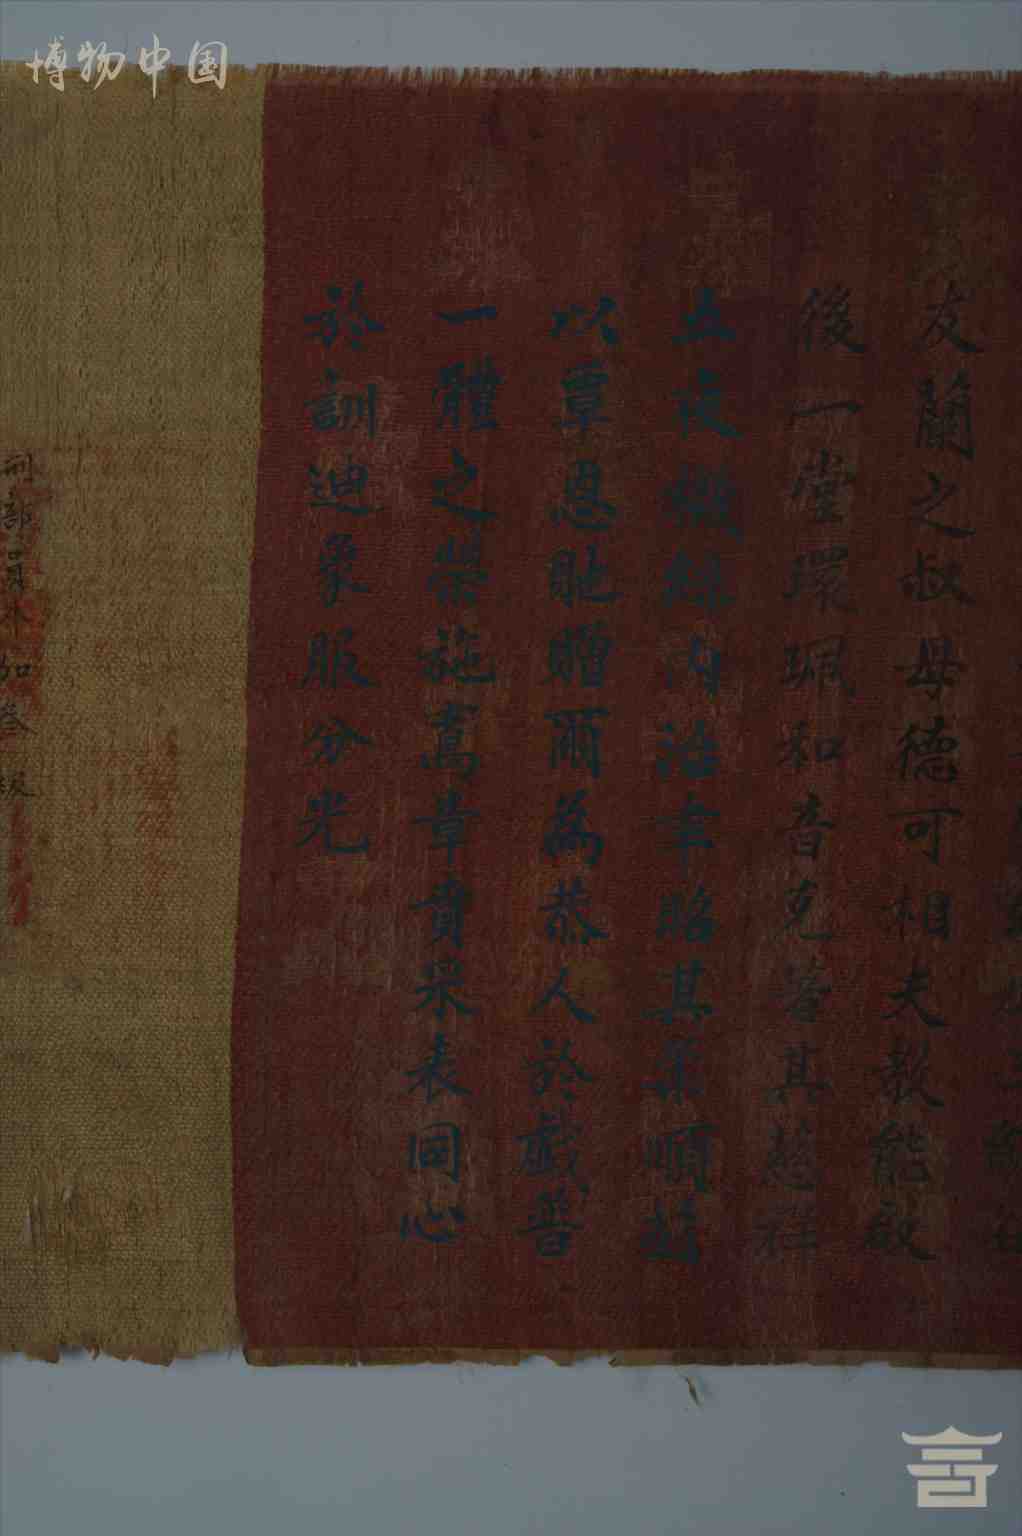 友蘭之叔母德可相夫教能啟
後一堂環珮和音克著其慈祥
五夜機絲內治幸昭其柔順茲
以覃恩貤贈爾為恭人於戲普
一體之榮施鸞章賁采表同心
於訓迪象服分光
刑部員外加叁級
博物中国